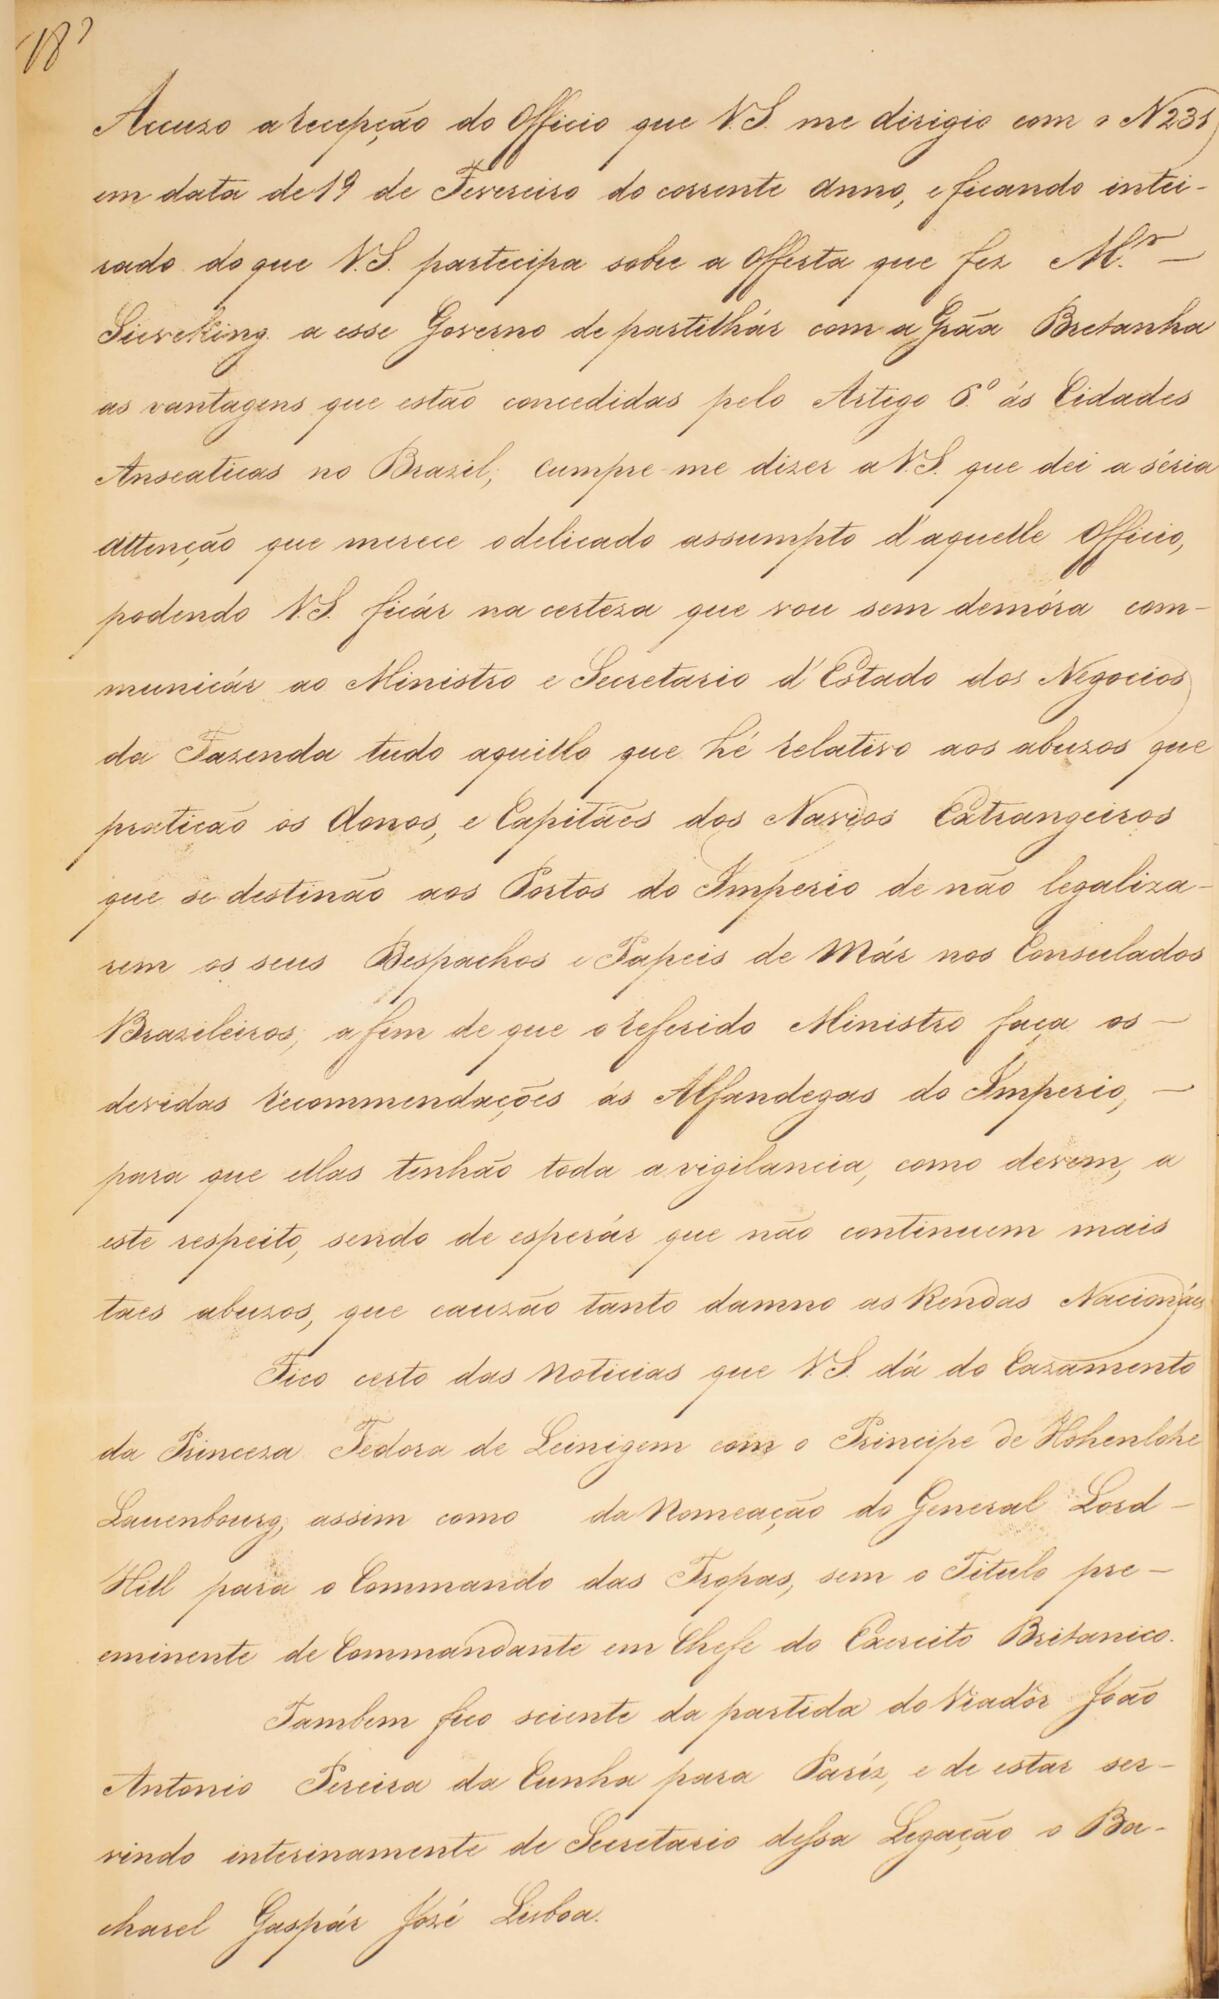 Accuzo a recepção do Officio que V.S. me dirigio com o N 231
em data de 19 de Fevereiro do corrente anno, e ficando intei-
rado do que V.S. partecipa sobre a Offerta que fez M.r —
Sieveking a esse Governo de partilhár com a Grãa Bretanha
as vantagens que estão concedidas pelo Artigo 6.º ás Cidades
Anseaticas no Brazil, cumpre-me dizer a V.S. que dei a séria
attenção que merece o delicado assumpto d'aquelle Officio,
podendo V.S. ficár na certeza que vou sem demóra com-
municár ao Ministro e Secretario d'Estado dos Negocios
da Fazenda tudo aquillo que hé relativo aos abuzos que
praticão os donos, e Capitães dos Navios Extrangeiros
que se destinão aos Portos do Imperio de não legaliza-
rem os seus Despachos e Papeis de Már nos Consulados
Brazileiros, a fim de que o referido Ministro faça as —
devidas recommendações ás Alfandegas do Imperio, —
para que ellas tenhão toda a vigilancia, como devem, a
este respeito, sendo de esperár que não continuem mais
taes abuzos, que cauzão tanto damno as Rendas Nacionáes
Fico certo das noticias que V.S. dá do Cazamento
da Princeza Fedora de Leinigem com o Principe de Hohenlohe
Lauenbourg, assim como da Nomeação do General Lord —
Hill para o Commando das Tropas, sem o Titulo pre-
eminente de Commandante em Chefe do Exercito Britanico.
Tambem fico sciente da partida do Viadôr João
Antonio Pereira da Cunha para Paríz, e de estar ser-
vindo interinamente de Secretario dessa Legação o Ba-
charel Gaspár José Lisboa.